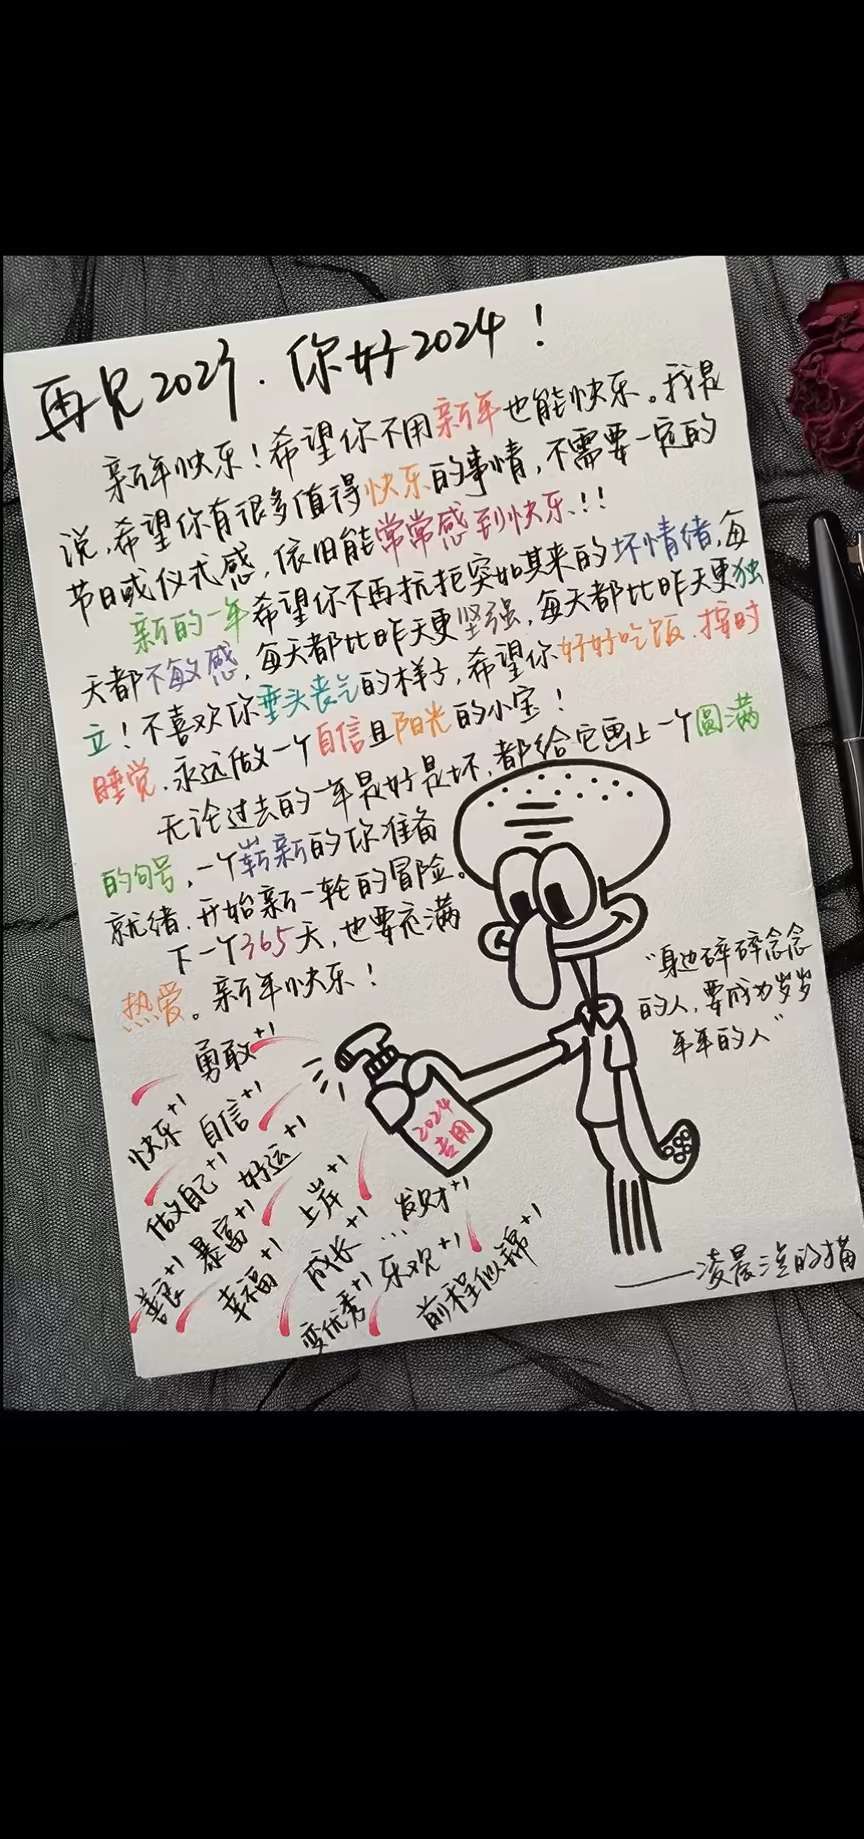 再见2023.你好2024！
新年快乐！希望你不用新年也能快乐。我是
说，希望你有很多值得快乐的事情，不需要一定的
节日或仪式感，依旧能常常感到快乐！！
新的一年希望你不再抗拒突如其来的坏情绪，每
天都不敏感，每天都比昨天更坚强，每天都比昨天更独
立！不喜欢你垂头丧气的样子，希望你好好吃饭、按时
睡觉，永远做一个自信且阳光的小宝！
无论过去的一年是好是坏，都给它画上一个圆满
的句号，一个崭新的你准备
就绪，开始新一轮的冒险。
下一个365天，也要充满
热爱。新年快乐！
“身边碎碎念念
的人，要成为岁岁
年年的人”
勇敢+1
快乐+1 自信+1
做自己+1 好运+1
善良+1 暴富+1 上岸+1
幸福+1 成长+1 … 发财+1
变优秀+1 乐观+1 前程似锦+1
2024
专用
——凌晨
的猫